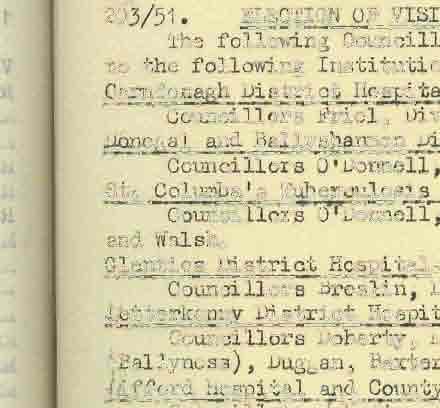 203/51. ELECTION OF VISI
The following Councill
to the following Institutio
Carndonagh District Hospita
Councillors Friel, Div
Donegal and Ballyshannon Di
Councillors O'Donnell,
St. Columba's Tuberculosis
Councillors O'Donnell,
and Walsh.
Glenties District Hospital.
Councillors Breslin,
Letterkenny District Hospit
Councillors Doherty,
(Ballyness), Duggan, Baxter
Lifford Hospital and County